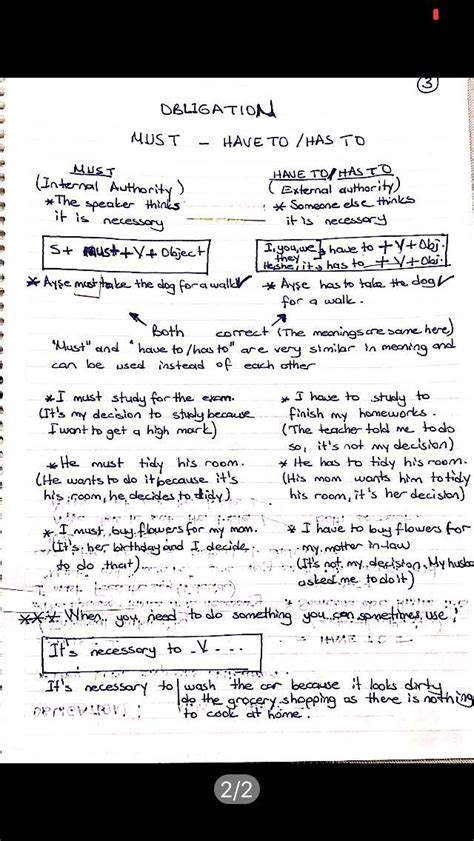 3
OBLIGATION
MUST - HAVE TO / HAS TO
MUST
(Internal Authority)
* The speaker thinks
it is necessary
HAVE TO / HAS TO
(External authority)
* Someone else thinks
it is necessary
S+ must + V + Object
I, you, we, they } have to + V + Obj.
He, she, it } has to + V + Obj.
* Ayşe must take the dog for a walk ✓
* Ayşe has to take the dog ✓
for a walk.
Both correct (The meanings are same here)
"Must" and "have to/has to" are very similar in meaning and
can be used instead of each other
* I must study for the exam.
(It's my decision to study because
I want to get a high mark)
* I have to study to
finish my homeworks.
(The teacher told me to do
so, it's not my decision)
* He must tidy his room.
(He wants to do it because it's
his room, he decides to tidy)
* He has to tidy his room.
(His mom wants him to tidy
his room, it's her decision)
* I must buy flowers for my mom.
(It's her birthday and I decide
to do that)
* I have to buy flowers for
my mother in-law
(It's not my decision. My husba
asked me to do it)
*** When you need to do something you can sometimes use;
It's necessary to - V - - - .
It's necessary to | wash the car because it looks dirty
do the grocery shopping as there is nothing
to cook at home.
2/2